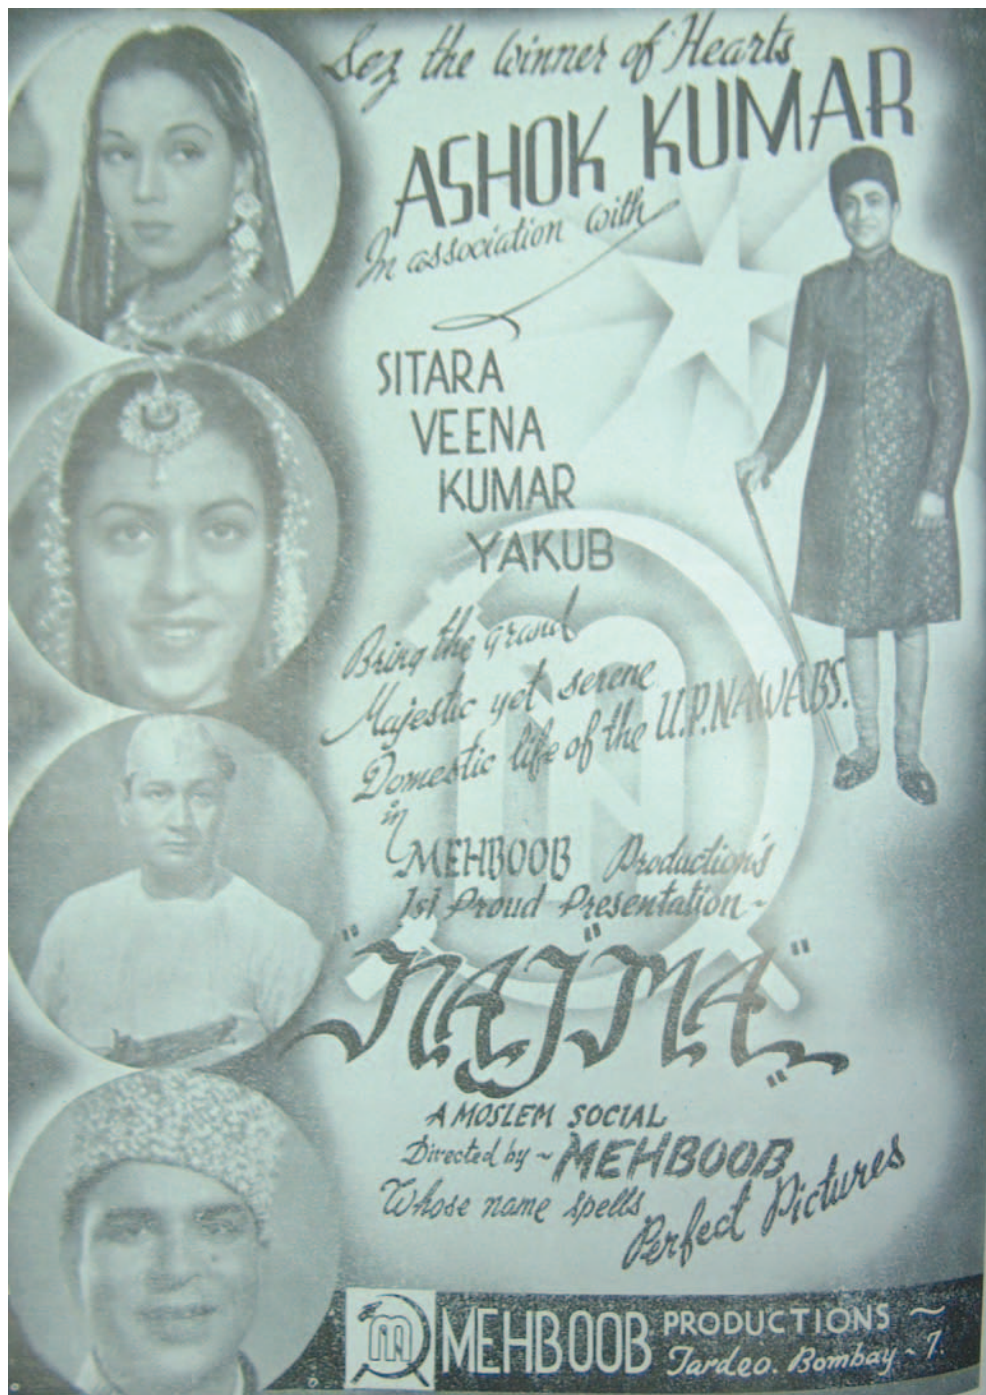 See the winner of Hearts
ASHOK KUMAR
In association with
SITARA
VEENA
KUMAR
YAKUB
Bring the grand
Majestic yet serene
Domestic life of the U.P. NAWABS.
in
MEHBOOB Production's
1st Proud Presentation -
"NAJMA"
A MOSLEM SOCIAL
Directed by ~ MEHBOOB
Whose name spells
Perfect Pictures
M
MEHBOOB PRODUCTIONS ~
Tardeo. Bombay ~ 7.